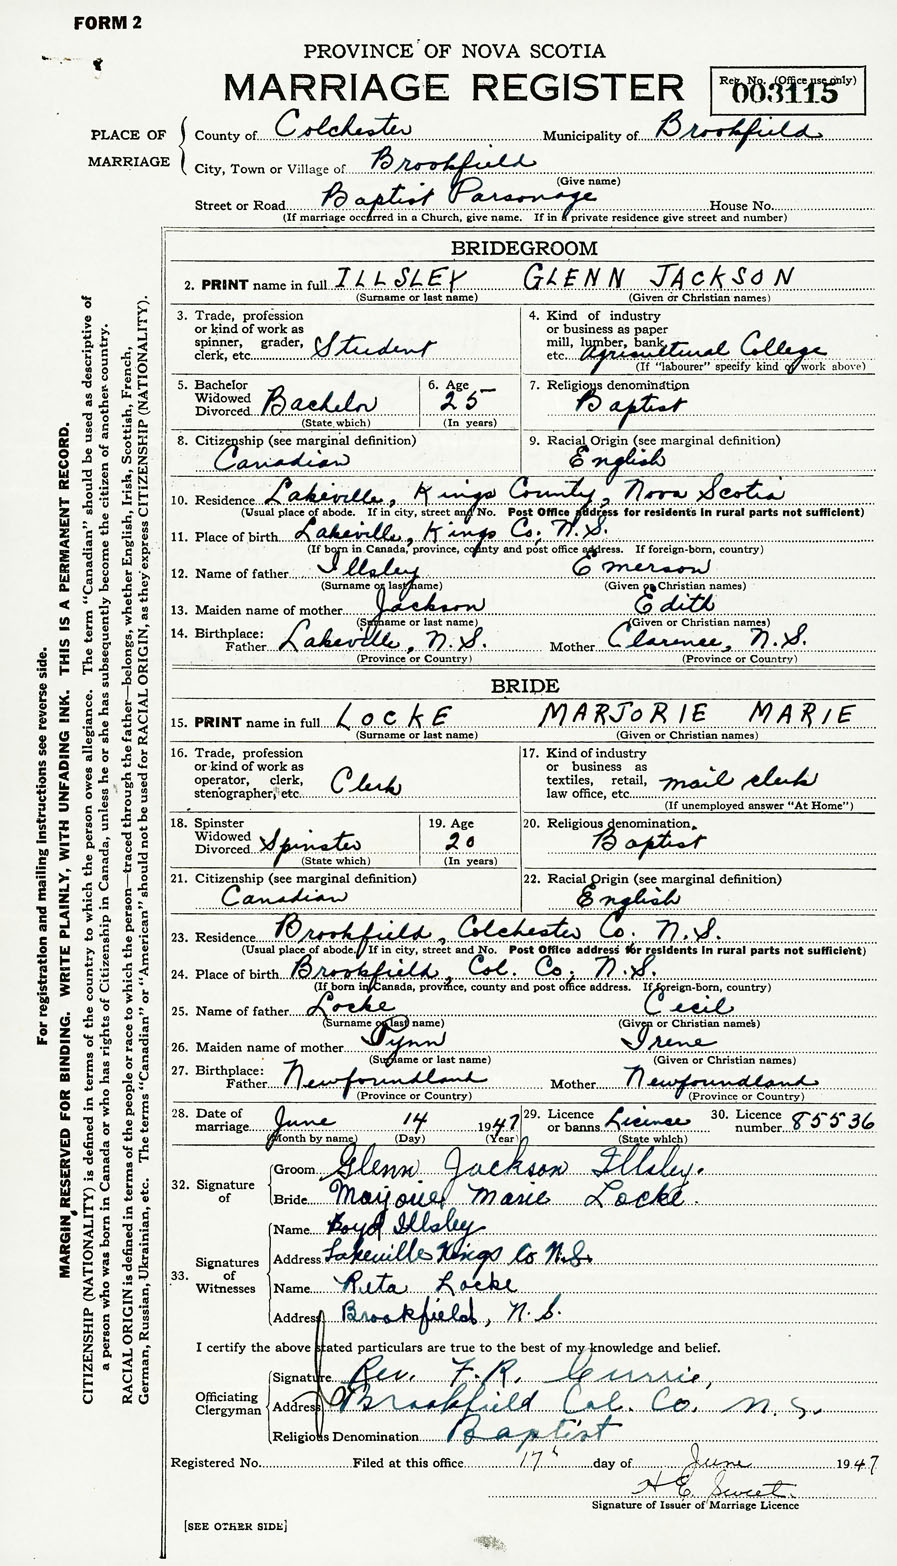 FORM 2
PROVINCE OF NOVA SCOTIA
MARRIAGE REGISTER
Reg. No. (Office use only)
003115
PLACE OF MARRIAGE
County of Colchester Municipality of Brookfield
City, Town or Village of Brookfield
(Give name)
Street or Road Baptist Parsonage House No.
(If marriage occurred in a Church, give name. If in a private residence give street and number)
BRIDEGROOM
2. PRINT name in full ILLSLEY GLENN JACKSON
(Surname or last name) (Given or Christian names)
3. Trade, profession
or kind of work as
spinner, grader,
clerk, etc. Student
4. Kind of industry
or business as paper
mill, lumber, bank,
etc. Agricultural College
(If "labourer" specify kind of work above)
5. Bachelor
Widowed
Divorced Bachelor
(State which)
6. Age
25
(In years)
7. Religious denomination
Baptist
8. Citizenship (see marginal definition)
Canadian
9. Racial Origin (see marginal definition)
English
10. Residence Lakeville, Kings County, Nova Scotia
(Usual place of abode. If in city, street and No. Post Office address for residents in rural parts not sufficient)
11. Place of birth Lakeville, Kings Co, N.S.
(If born in Canada, province, county and post office address. If foreign-born, country)
12. Name of father Illsley Emerson
(Surname or last name) (Given or Christian names)
13. Maiden name of mother Jackson Edith
(Surname or last name) (Given or Christian names)
14. Birthplace:
Father Lakeville, N.S. Mother Clarence, N.S.
(Province or Country) (Province or Country)
BRIDE
15. PRINT name in full LOCKE MARJORIE MARIE
(Surname or last name) (Given or Christian names)
16. Trade, profession
or kind of work as
operator, clerk,
stenographer, etc. Clerk
17. Kind of industry
or business as
textiles, retail,
law office, etc. mail clerk
(If unemployed answer "At Home")
18. Spinster
Widowed
Divorced Spinster
(State which)
19. Age
20
(In years)
20. Religious denomination
Baptist
21. Citizenship (see marginal definition)
Canadian
22. Racial Origin (see marginal definition)
English
23. Residence Brookfield, Colchester Co. N.S.
(Usual place of abode. If in city, street and No. Post Office address for residents in rural parts not sufficient)
24. Place of birth Brookfield, Col. Co, N.S.
(If born in Canada, province, county and post office address. If foreign-born, country)
25. Name of father Locke Cecil
(Surname or last name) (Given or Christian names)
26. Maiden name of mother Pynn Irene
(Surname or last name) (Given or Christian names)
27. Birthplace:
Father Newfoundland Mother Newfoundland
(Province or Country) (Province or Country)
28. Date of
marriage June 14 1947
(Month by name) (Day) (Year)
29. Licence
or banns Licence
(State which)
30. Licence
number 85536
32. Signature of
Groom Glenn Jackson Illsley.
Bride Marjorie Marie Locke.
33. Signatures of Witnesses
Name Boyd Illsley
Address Lakeville Kings Co N.S.
Name Reta Locke
Address Brookfield, N.S.
I certify the above stated particulars are true to the best of my knowledge and belief.
Officiating Clergyman
Signature Rev. F.R. Currie,
Address Brookfield Col. Co. N.S.
Religious Denomination Baptist
Registered No. Filed at this office 17th day of June 1947
H E Sweet
Signature of Issuer of Marriage Licence
[SEE OTHER SIDE]
For registration and mailing instructions see reverse side.
MARGIN RESERVED FOR BINDING. WRITE PLAINLY, WITH UNFADING INK. THIS IS A PERMANENT RECORD.
CITIZENSHIP (NATIONALITY) is defined in terms of the country to which the person owes allegiance. The term "Canadian" should be used as descriptive of
a person who was born in Canada or who has rights of Citizenship in Canada, unless he or she has subsequently become the citizen of another country.
RACIAL ORIGIN is defined in terms of the people or race to which the person—traced through the father—belongs, whether English, Irish, Scottish, French,
German, Russian, Ukrainian, etc. The terms "Canadian" or "American" should not be used for RACIAL ORIGIN, as they express CITIZENSHIP (NATIONALITY).